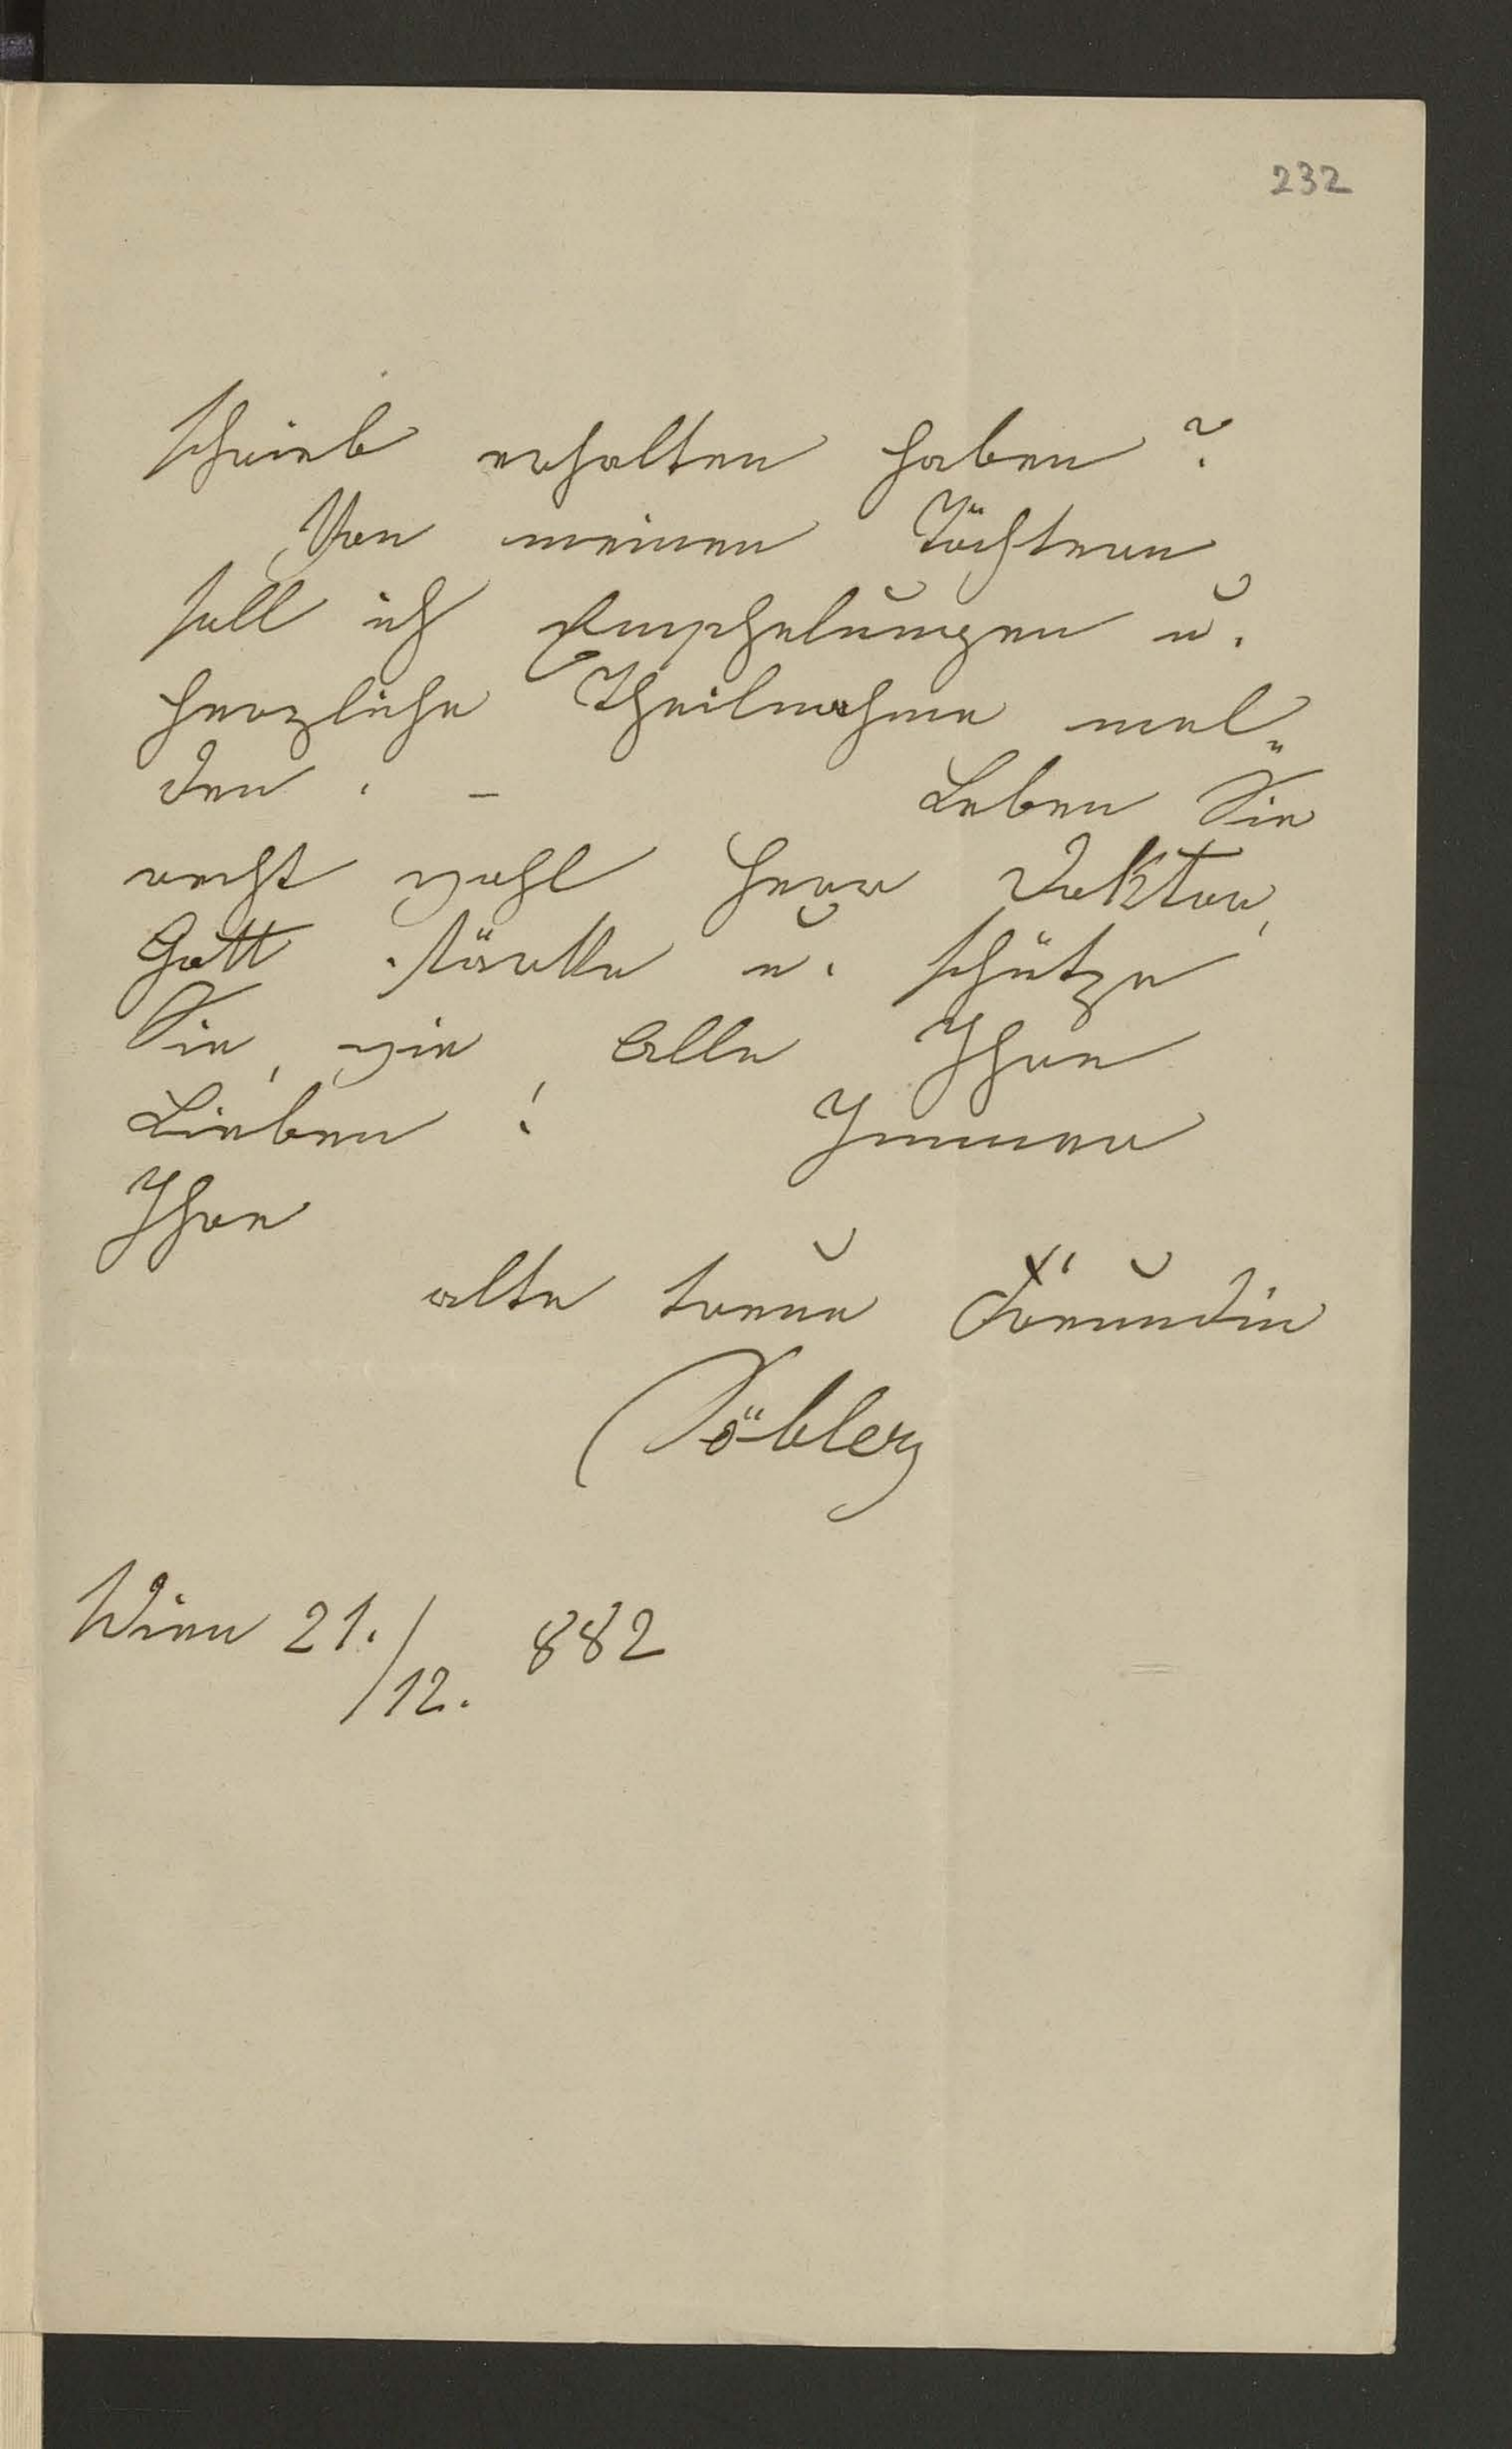 232
schrieb erhalten haben?
Von meinen Töchtern
soll ich Empfehlungen u.
herzliche Theilnahme mel„
den. – Leben Sie
recht wohl Herr Doktor,
Gott stärke u. schütze
Sie, wie Alle Ihre
Lieben! Immer
Ihre
alte treue Freundin
Döbler
Wien 21./12. 882